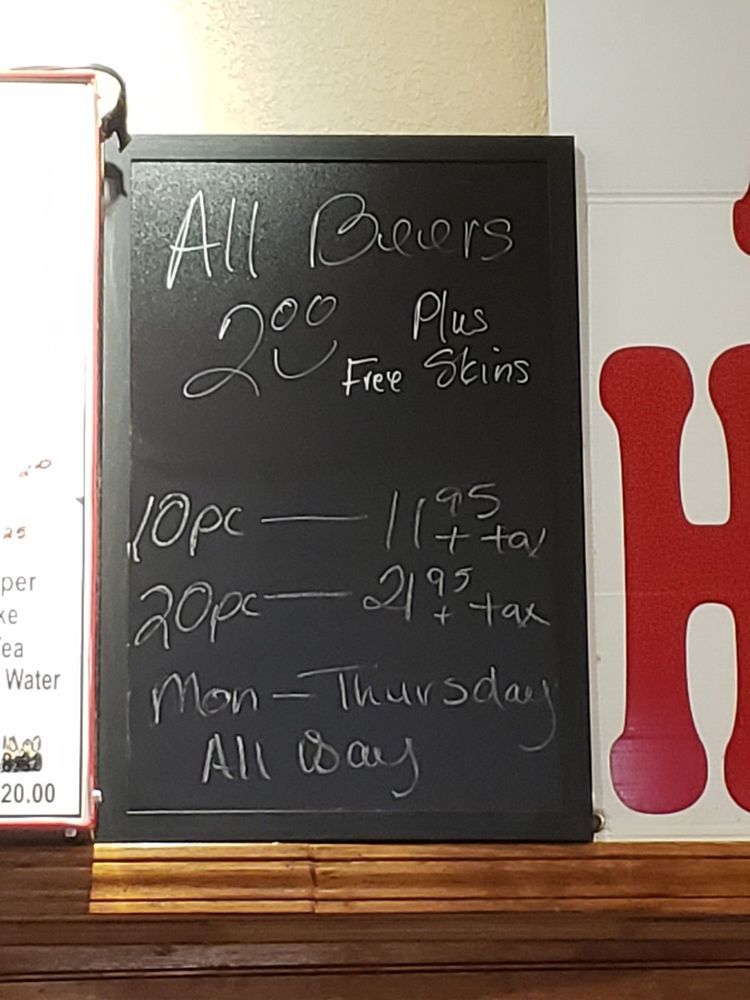 All Beers
2.00 Plus
Free Skins
10pc — 11.95
+ tax
20pc — 21.95
+ tax
Mon — Thursday
All Day
25
per
ke
Tea
Water
20.00
H